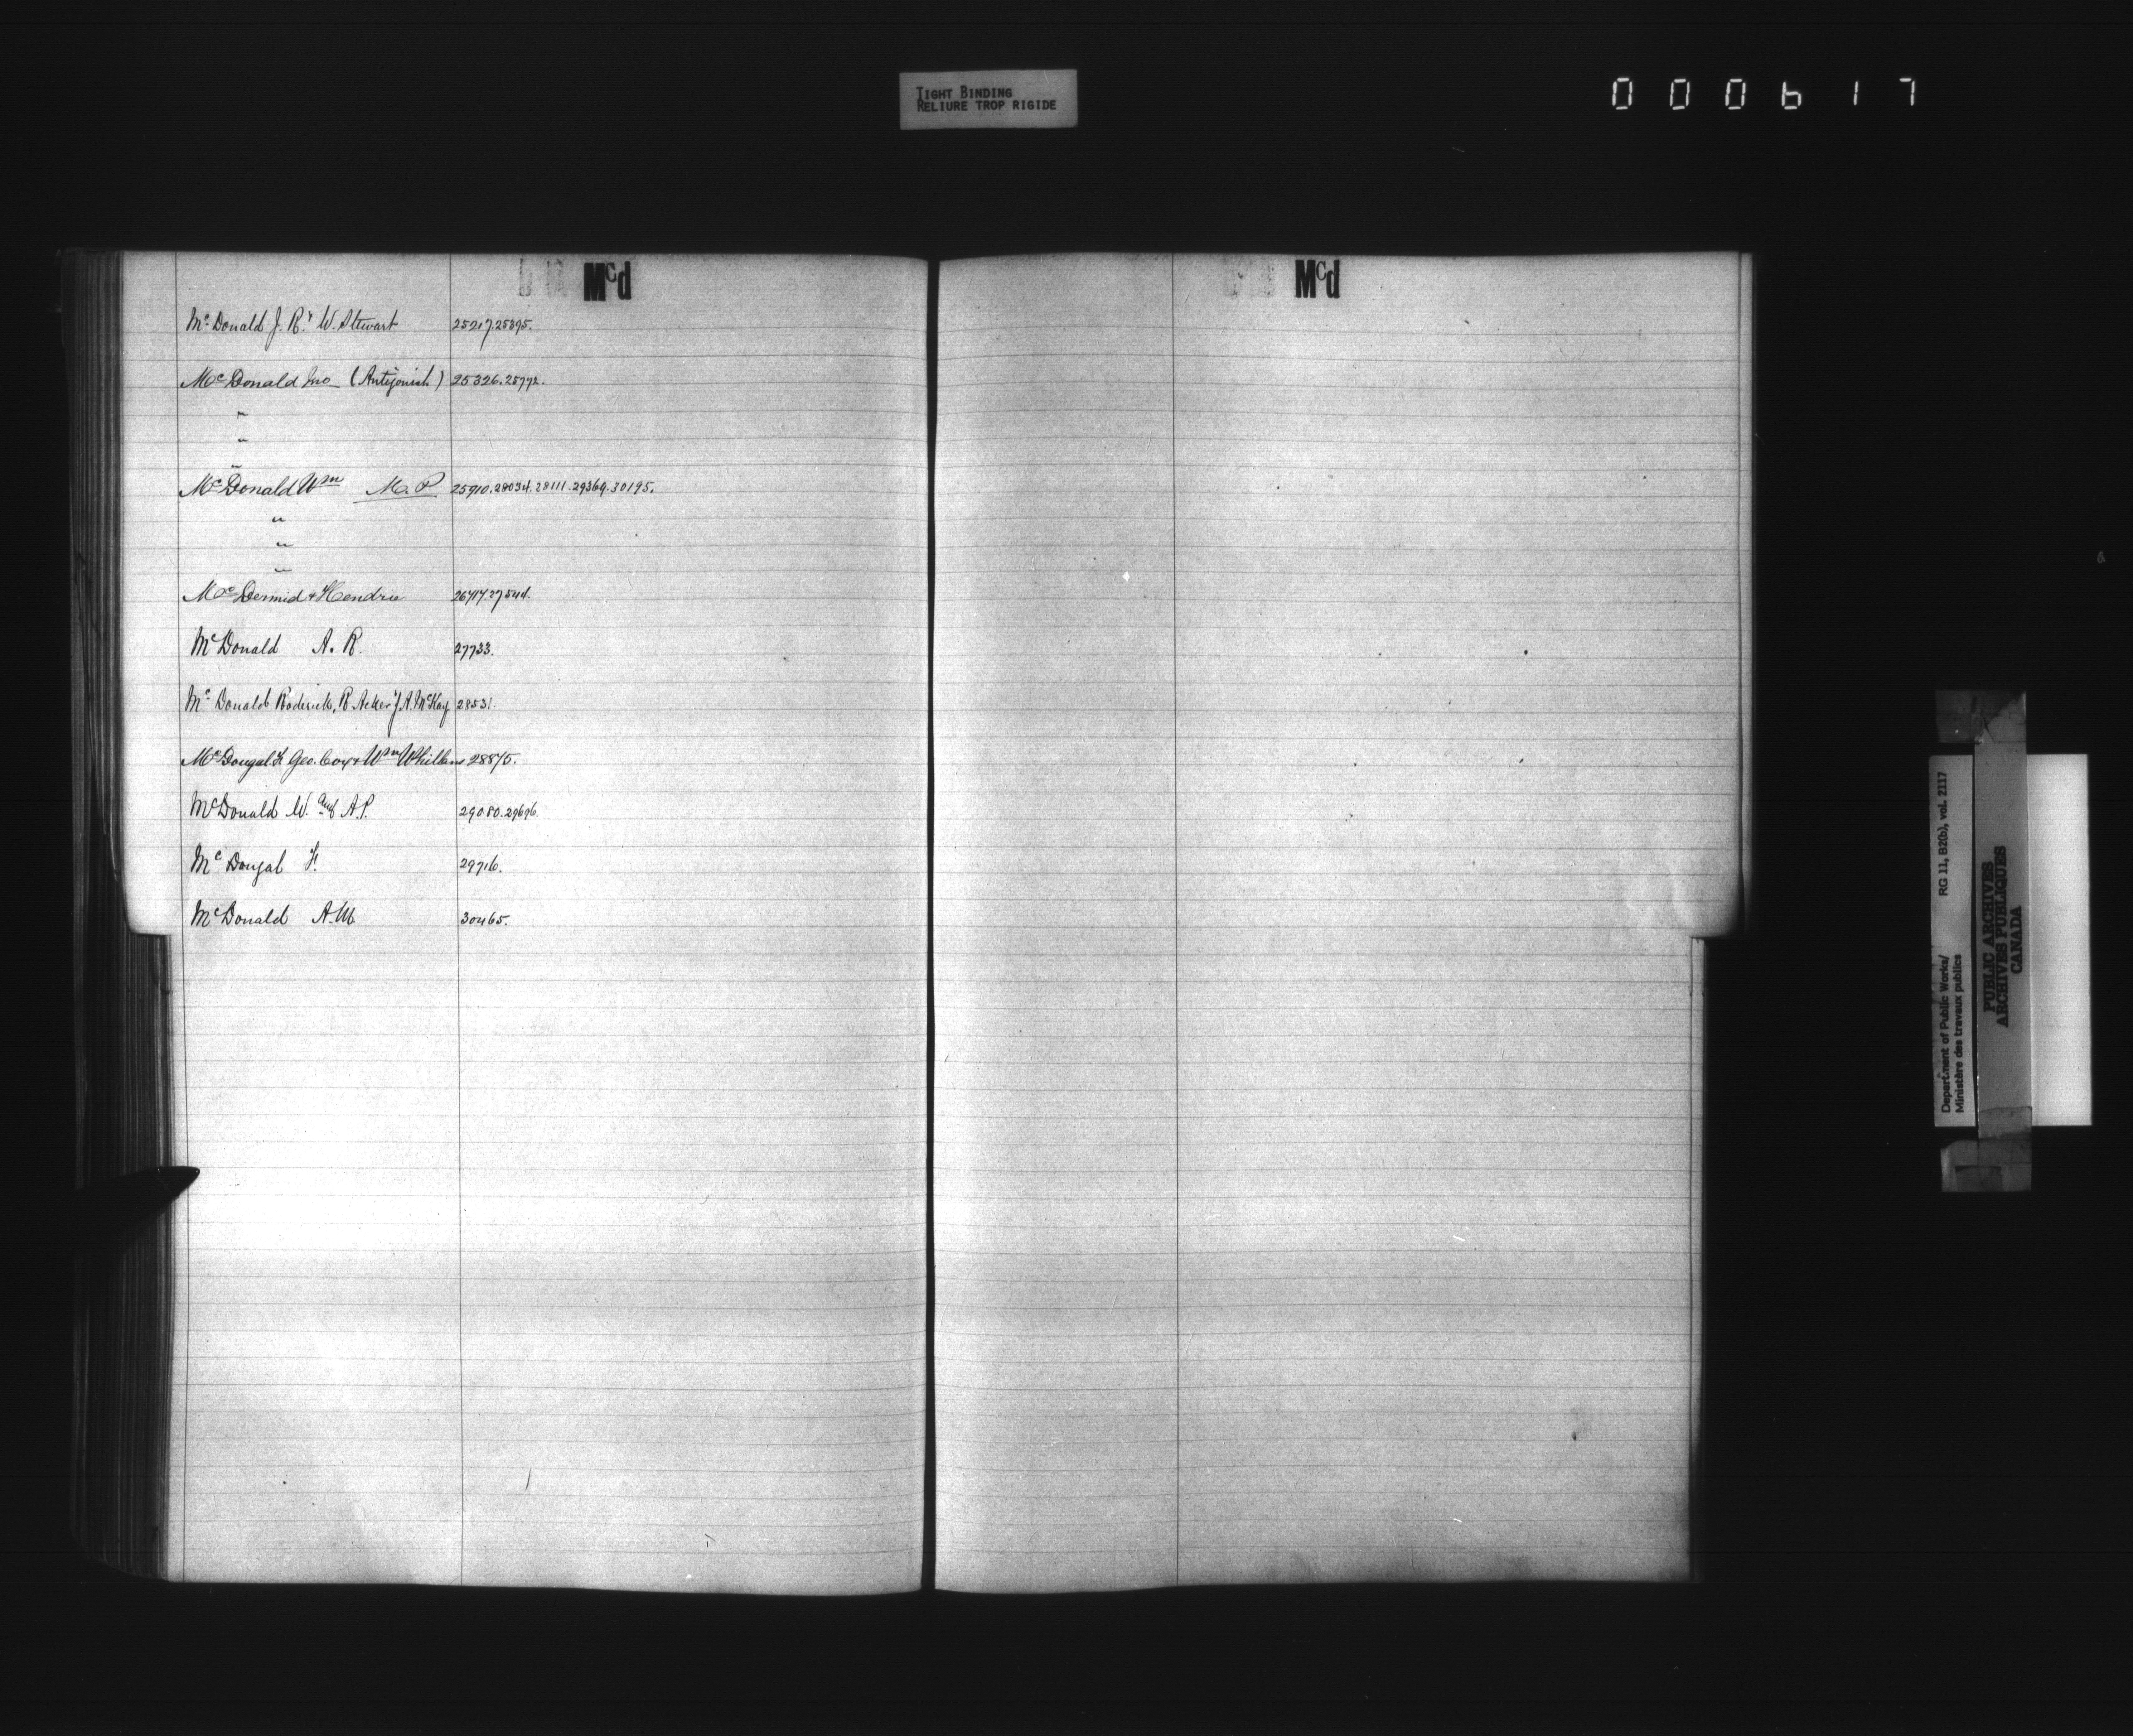 TIGHT BINDING
RELIURE TROP RIGIDE
000617
Mcd
McDonald J. R. & W. Stewart 25217.25395.
McDonald Jno (Antigonish) 25326.25772.
"
"
"
McDonald Wm M.P 25910.28034.28111.29369.30195.
"
"
"
McDermid & Hendrie 26717.27544.
McDonald A. R. 27733.
McDonald Roderick, R. Acker J. A. McKay 2853
McDougal F. Geo. Cox & Wm Whillans 28875.
McDonald W. and A. P. 29080.29696.
McDougal F. 29716.
McDonald A. M 30465.
Mcd
Department of Public Works/ RG 11, B2(b), vol. 2117
Ministère des travaux publics
PUBLIC ARCHIVES
ARCHIVES PUBLIQUES
CANADA